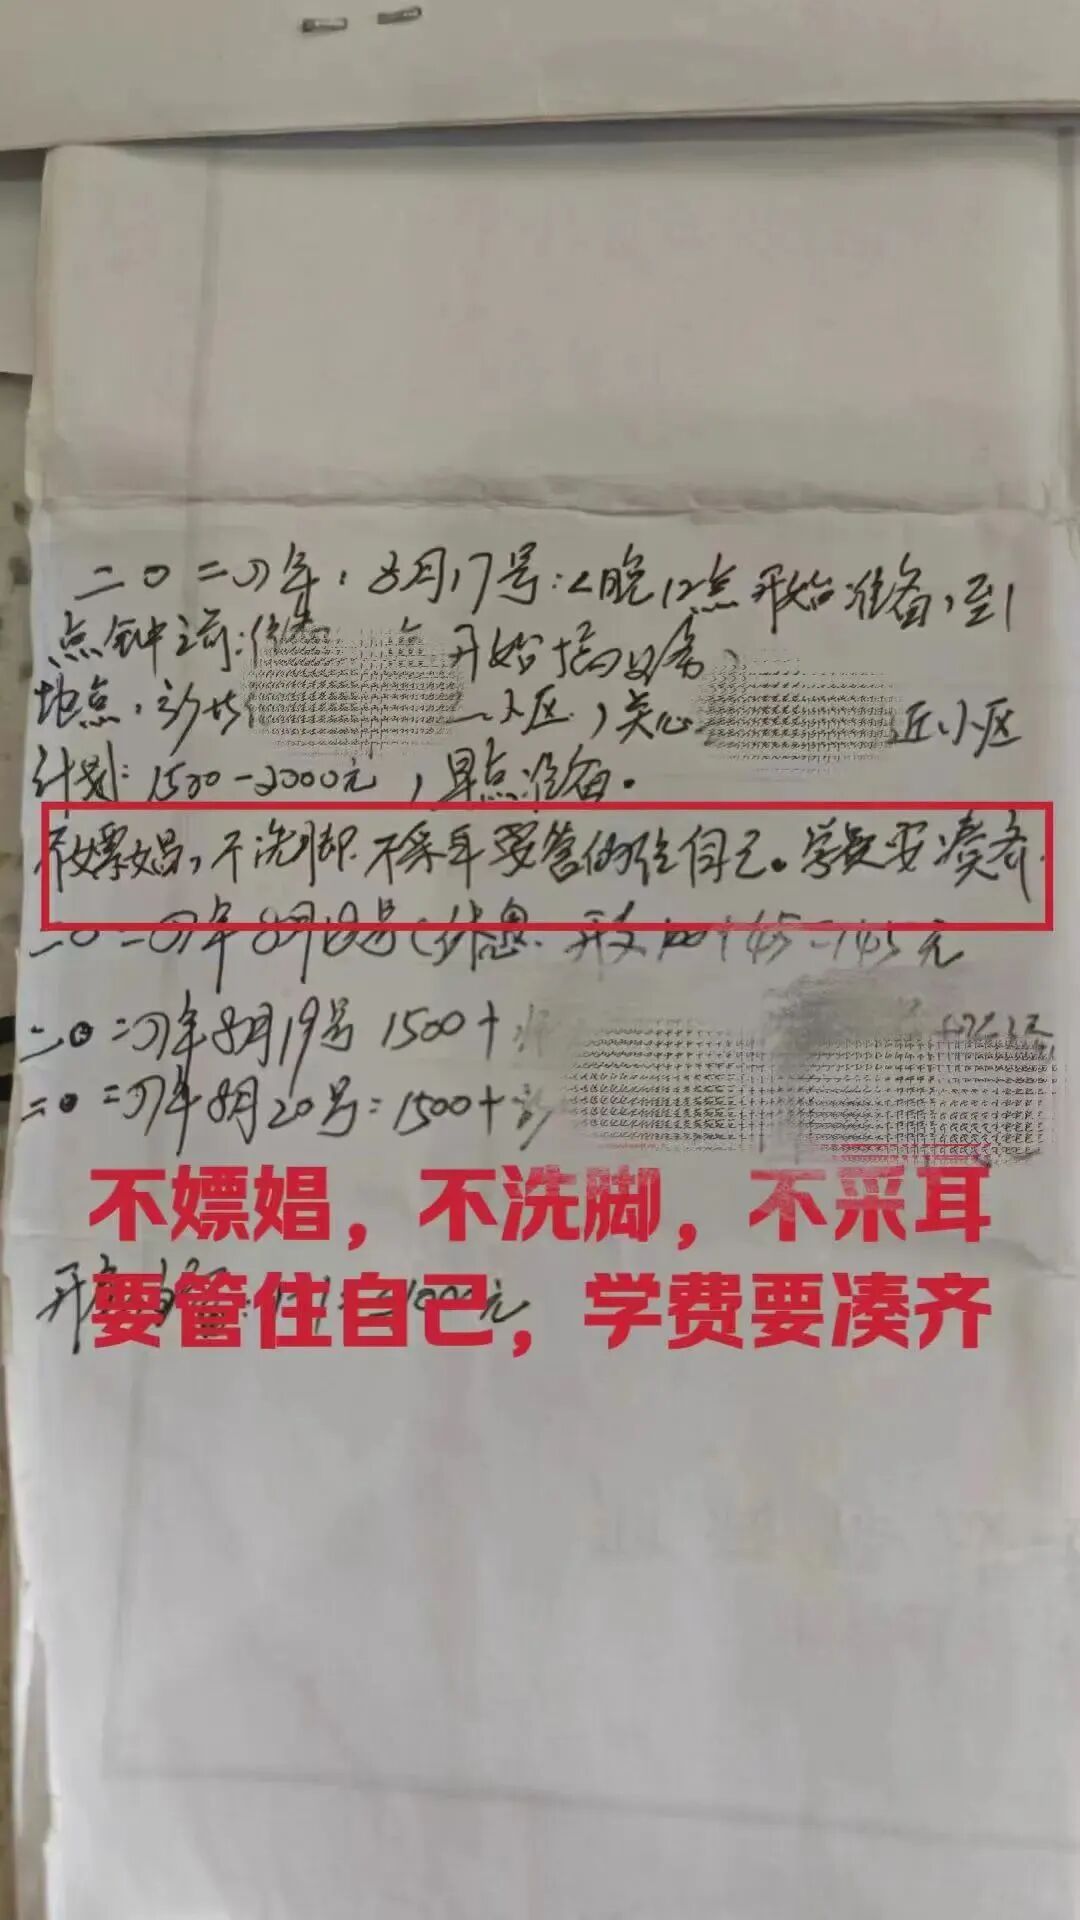 二〇二四年，8月17号：<晚12点开始准备，到1
点钟之前：准 开始搞
地点， 小区，关心 近小区
计划：1500-2000元，早点准备。
不嫖娼，不洗脚 不采耳 要管 住自己。学费要凑齐。
二〇二四年8月18号<休息. 元
二〇二四年8月19号 1500+
二〇二四年8月20号：1500+
不嫖娼，不洗脚，不采耳
要管住自己，学费要凑齐